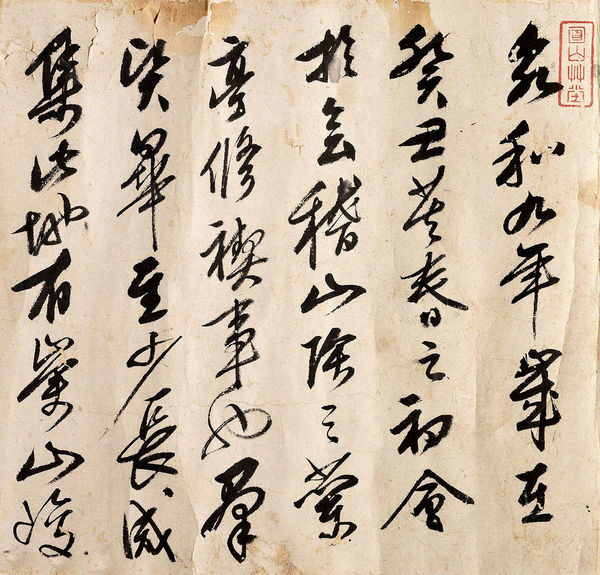 永和九年歲在
癸丑暮春之初會
於会稽山陰之蘭
亭脩禊事也羣
賢畢至少長咸
集此地有崇山峻